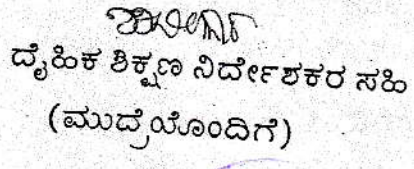 ದೈಹಿಕ ಶಿಕ್ಷಣ ನಿರ್ದೇಶಕರ ಸಹಿ
(ಮುದ್ರೆಯೊಂದಿಗೆ)